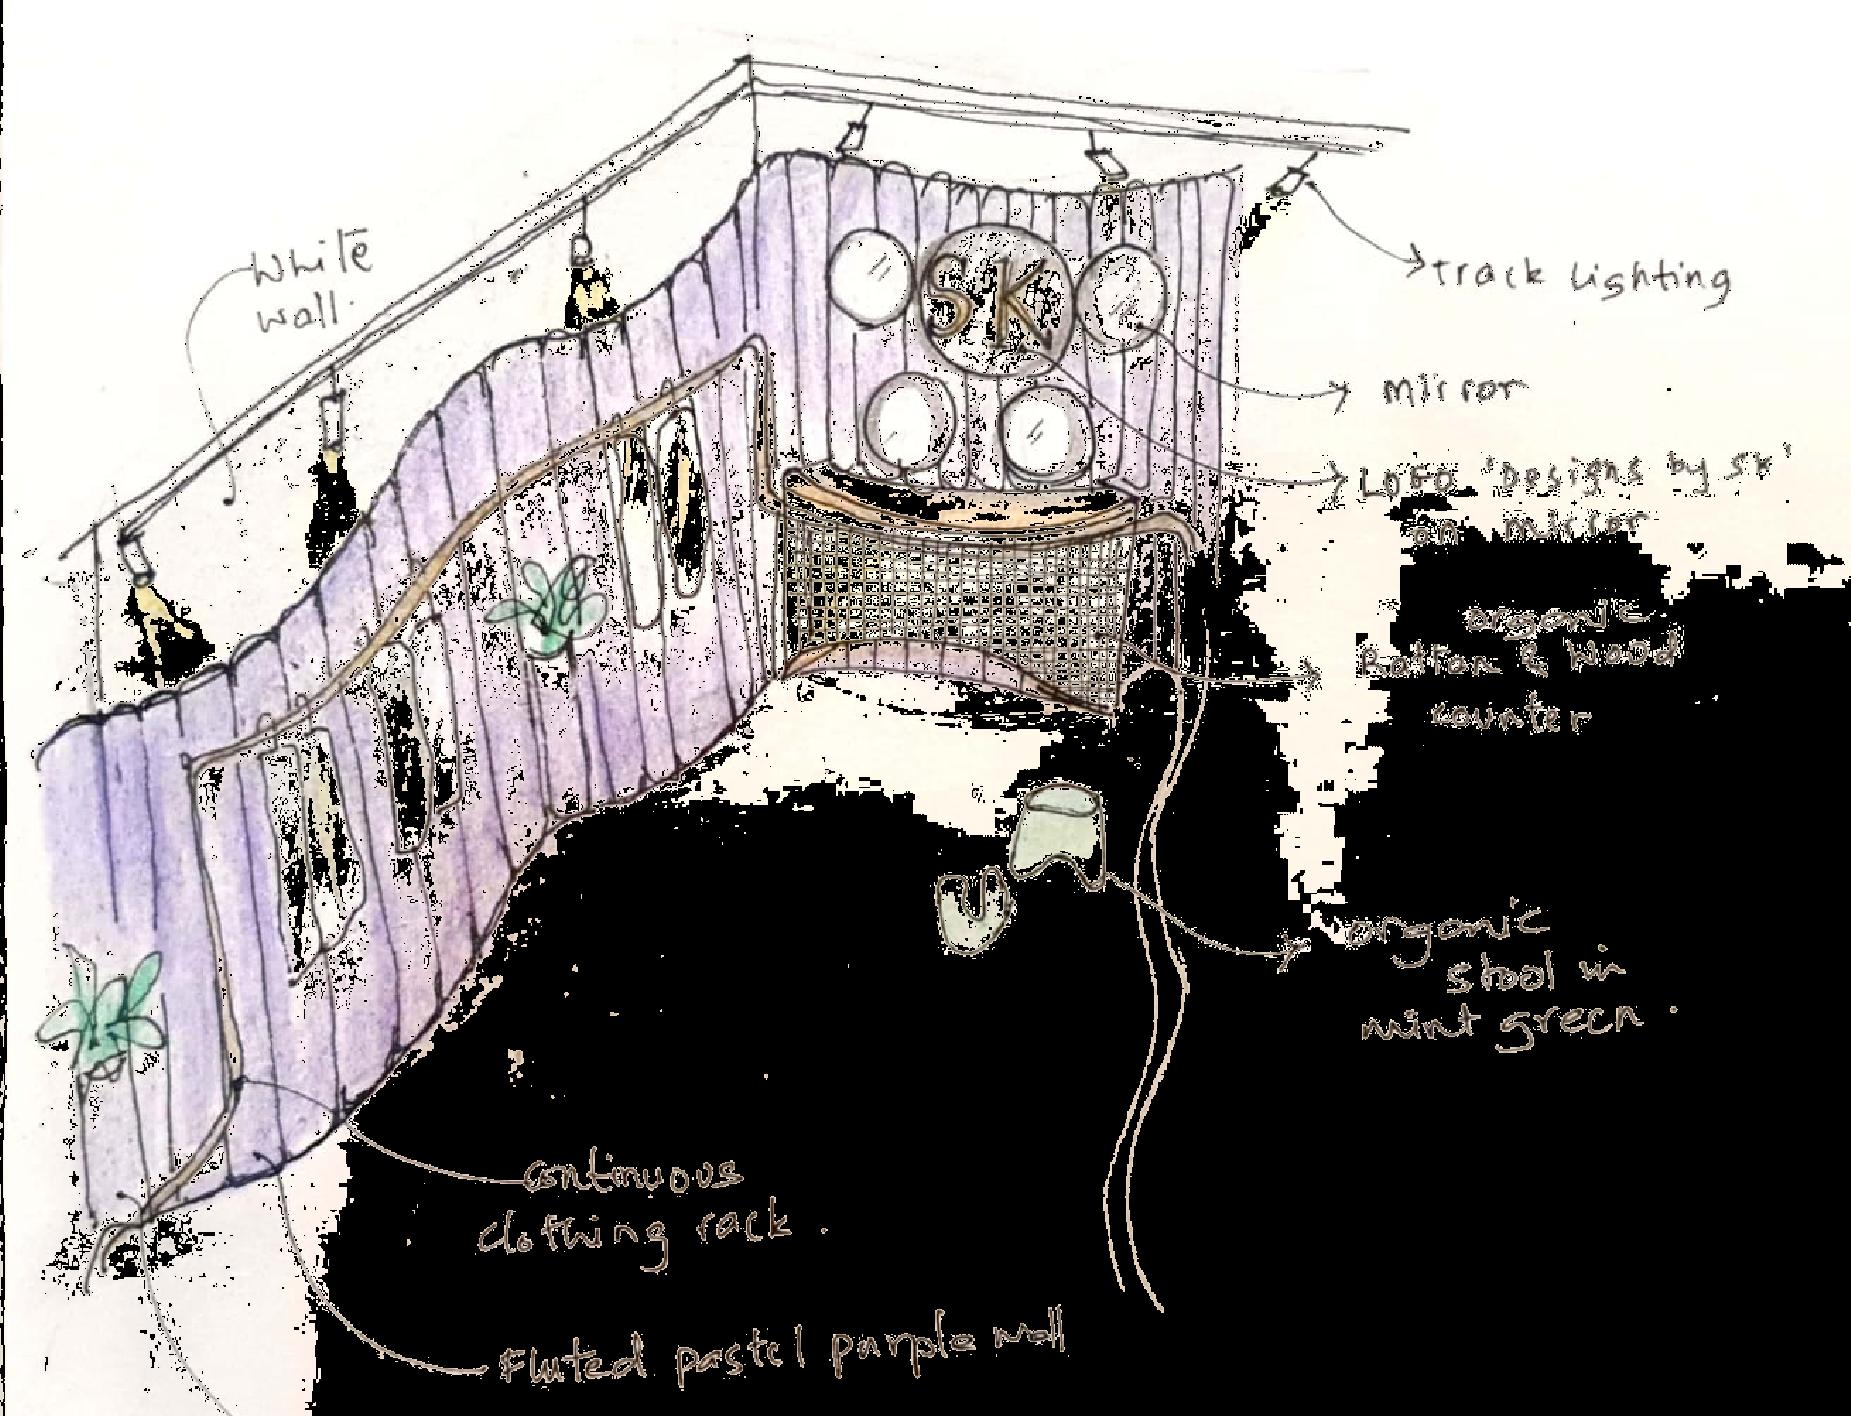 White
wall.
SK
track lighting
mirror
LOGO 'Designs by SK'
on mirror
organic
Rattan & Wood
counter
organic
stool in
mint green.
continuous
clothing rack.
Fluted pastel purple wall